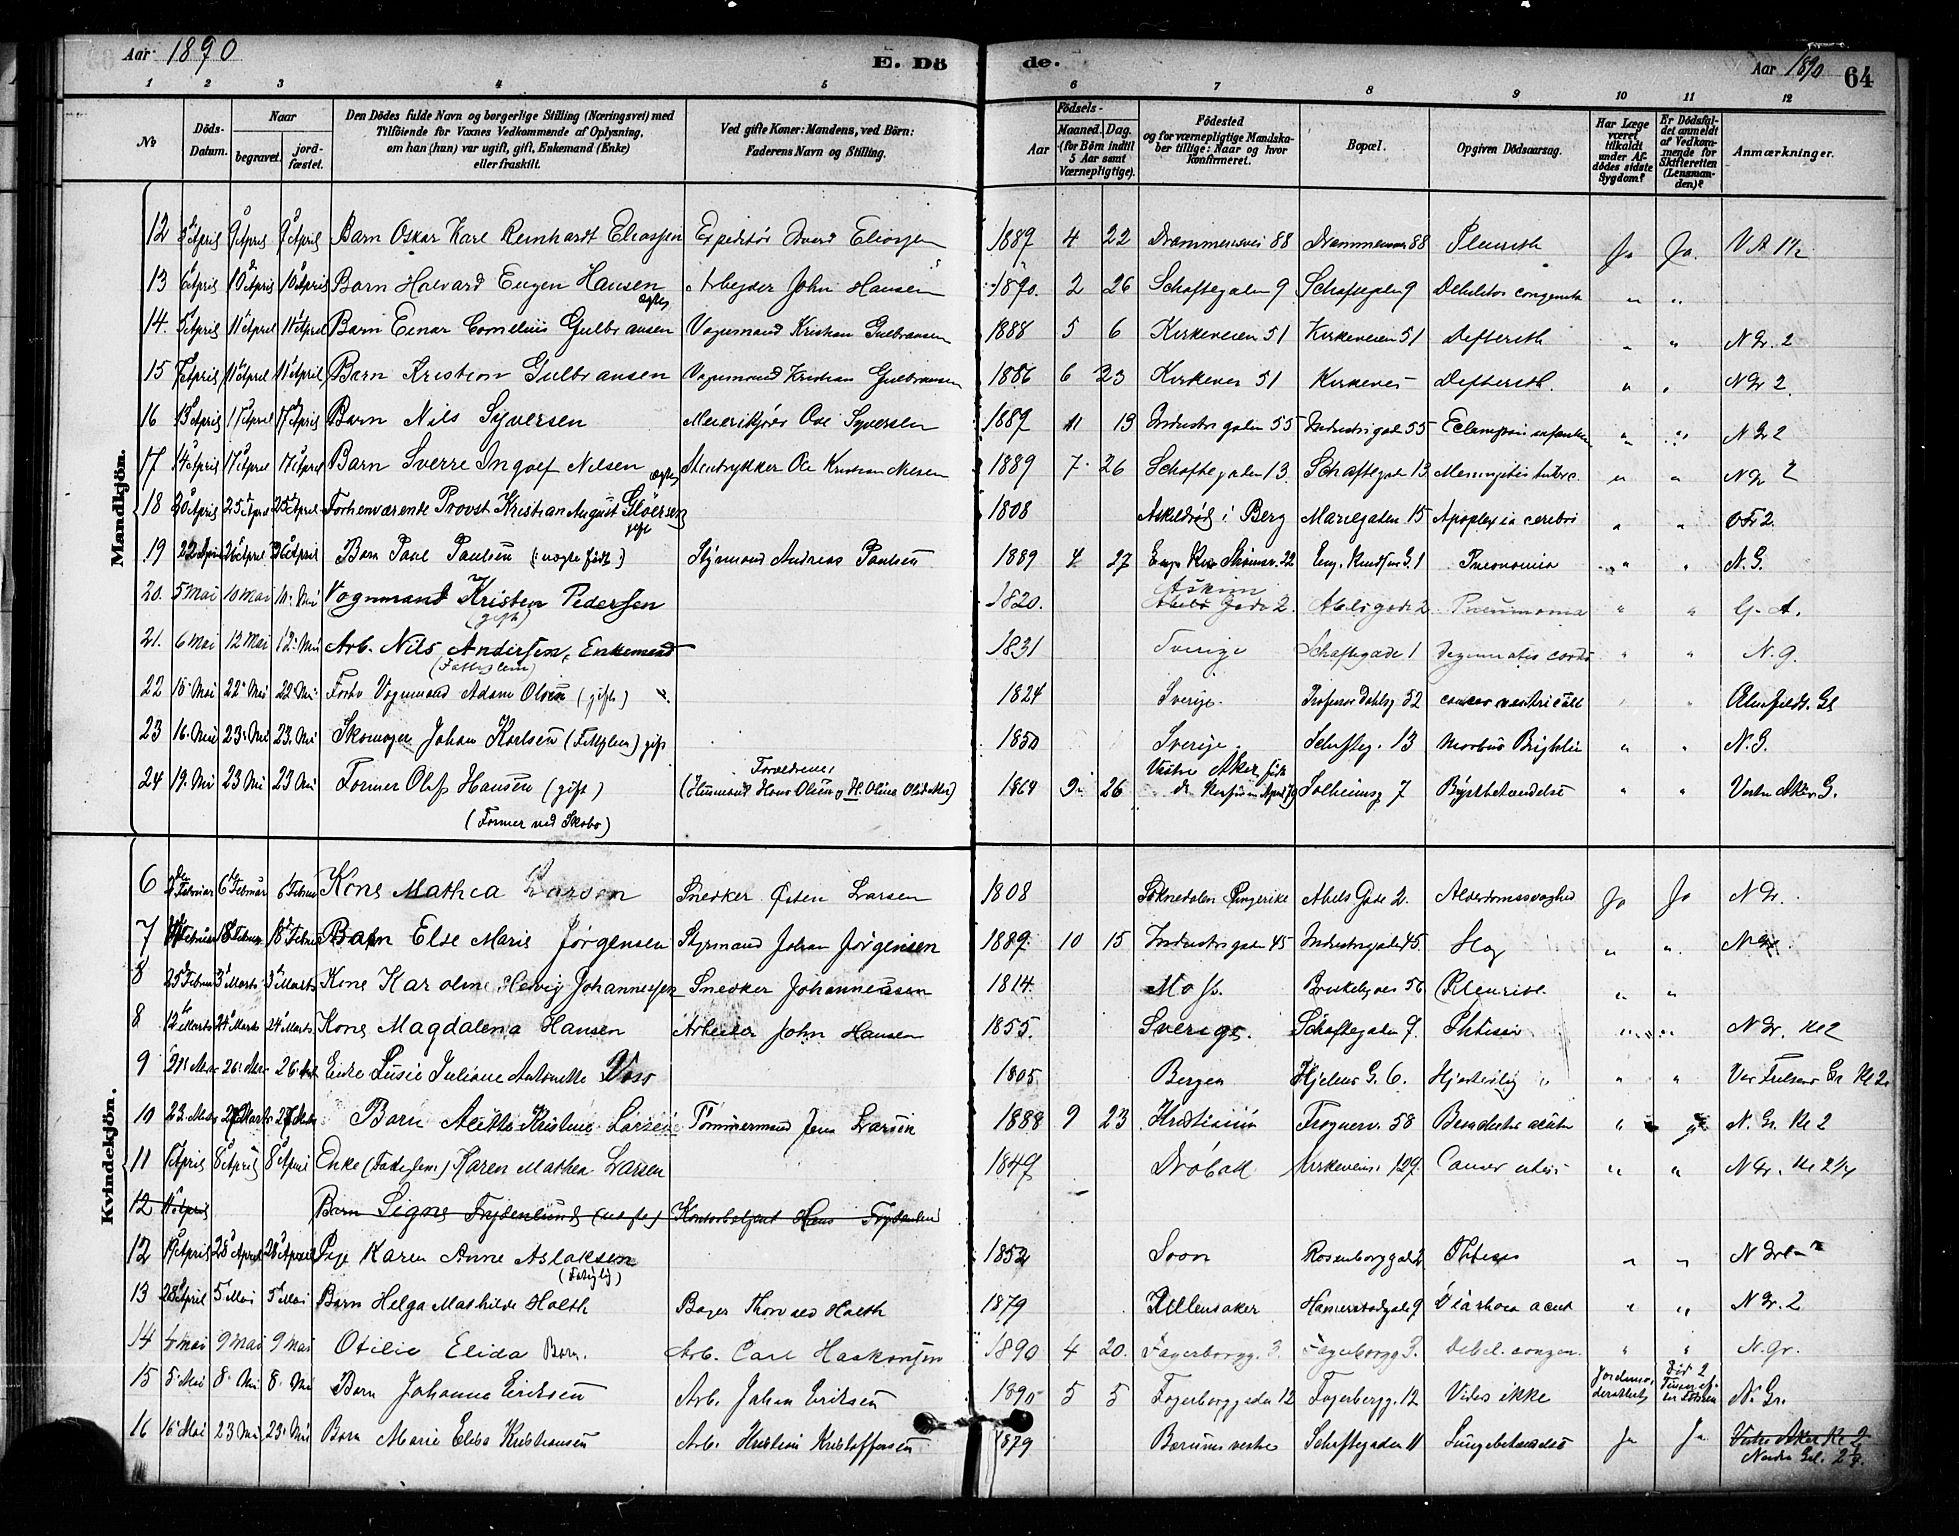 Aar 1890
E. Dö
de.
Aar 1890
64
1 2 3 4 5 6 7 8 9 10 11 12
No
Döds-Datum.
Naar
begravet.
jordfæstet.
Den Dödes fulde Navn og borgerlige Stilling (Næringsvei) med
Tilföiende for Voxnes Vedkommende af Oplysning,
om han (hun) var ugift, gift, Enkemand (Enke)
eller fraskilt.
Ved gifte Koner: Mandens, ved Börn:
Faderens Navn og Stilling.
Aar
Födsels-
Maaned. Dag.
(for Börn indtil
5 Aar samt
Værnepligtige).
Födested
og for værnepligtige Mandska-
ber tillige: Naar og hvor
konfirmeret.
Bopæl.
Opgiven Dödsaarsag.
Har Læge
været
tilkaldt
under Af-
dödes sidste
Sygdom?
Er Dödsfal-
det anmeldt
af Vedkom-
mende for
Skifteretten
(Lensman-
den)?
Anmærkninger.
Mandkjön.
12 April 9 April 9 April Barn Oskar Karl Reinhardt Eliassen Expeditör Eliassen 1889 4 22 Drammensvei 88 Drammensv 88 Pleurith Ja Ja.
13 6 April 10 April 10 April Barn Halvard Eugen Hansen Arbejder John Hansen 1890. 2 26 Schaftegaden 9 Schaftegaden 9 Debilitas congenita " "
14. 5 April 11 April 11 April Barn Einar Cornelius Gulbransen Vognmand Kristian Gulbransen 1888 5 6 Kirkeveien 51 Kirkeveien 51 Defterith " " N Gr. 2
15 April 11 April 11 April Barn Kristian Gulbransen Vognmand Kristian Gulbransen 1886 6 23 Kirkevei 51 Kirkevei Defterith. " " N Gr 2.
16 13 April 17 April 17 April Barn Nils Syversen Meierikjörer Ole Syversen 1889 11 19 Industrigaden 55 Industrigade 55 Eclampsia infantum " " N Gr 2
17 14 April 17 April 17 April Barn Sverre Ingolf Nilsen Stentrykker Ole Kristian Nilsen 1889 7 26 Schaftegaden 13. Schaftegade 13 Meningitis tuberc. " " N Gr 2
18 20 April 25 April 25 April Forhenværende Provst Kristian August Glöersen gift 1808 Askildröd i Berg Mariegaden 15 Apoplexia cerebri " "
19 22 April 26 April 26 April Barn Paul Paulsen (uægte födt) Styrmand Andreas Paulsen 1889 4 27 22 G. 1 Pneonomia " " N. G.
20. 5 Mai 10 Mai 10. Mai Vognmand Kristen Pedersen (gift) 1820. Askim Abels Gade 2. Abelsgade 2 Pneumonia " " G. A.
21. 6 Mai 12 Mai 12. Mai Arb. Nils Andersen, Enkemand 1831 Sverige Schaftegade 1 Degeneratio cordis " " N. G.
22 18 Mai 22 Mai 22 Mai Forhv Vognmand Adam Olsen (gift) 1824 Sverige. Professor Dahlsg 52 cancer ventriculi "
23 16. Mai 23. Mai 23. Mai Skomager Johan Karlsen (Fattiglem) gift 1850 Sverige. Schafteg. 13 Morbus Brightii " " N. G.
24 19. Mai 23 Mai 23 Mai Former Olaf Hansen (gift) Forældrene: (Husmand Hans Olsen og H. Oline Olsdatter) 1864 9 26 Vestre Aker födt Solheimsg 7 Brystbetændelse " " Vestre Akers G.
(Former ved Skabo)
Kvindekjön.
6 Februar 6 Februar 6 Februar Kone Mathea Larsen Snedker Östen Larsen 1808 Soknedalen Ringerike Abels Gade 2. Alderdomssvaghed Ja Ja N Gr.
7 Februar 18 Februar 18 Februar Barn Else Marie Jörgensen Styrmand Johan Jörgensen 1889. 10 15 Industrigaden 45 Industrigaden 45 " " N Gr.
8 25 Februar 3 Marts 3 Marts Kone Karoline Hervig Johannessen Snedker Johannessen 1814 Moss. Briskebyvei 56 Pleurit. " "
8 12 Marts 24 Marts 24 Marts Kone Magdalena Hansen Arbeider John Hansen 1855. Sverige. Schaftegaden 9. Phtisis " " N Gr. Kl 2
9 21. Mar 26. Mar 26. Mar Enke Lusie Juliane Antonette Voss 1805 Bergen Hjelms G. 6. " " Vor Frelsers Gr Kl 2
10 23. Marts 27 Marts 27 Marts Barn Kristine Larsen Tömmermand Jens Larsen 1888 9 23 Kristiania Frognerv. 58 " N. Gr. Kl 2
11 April 8 April 8 April Enke (Fattiglem) Karen Mathea Larsen 1849 Dröbak Kirkeveien 129. Cancer uteri " " N Gr. Kl 2 1/4
12 April Barn Signe Frydenlund (uægte) Kontorbetjent Hans Frydenlund
12 19 April 28 April 28 April Pige Karen Anne Aslaksen (Fattiglig) 1852 Soon Rosenborggade 2 Phtisis " " N Gr
13 28 April 5 Mai 5 Mai Barn Helga Mathilde Holth Bager Thorvald Holth 1879 Ullensaker Hammerstadgade 9 Diarhoea acut " " N Gr. 2
14 4 Mai 9 Mai 9 Mai Otilie Elida Barn. Arb. Carl Haakonsen 1890 4 20. Fagerborgg. 3. Fagerborgg 3. Debil. congen. " " N. Gr.
15 5 Mai 8. Mai 8. Mai Barn Johanna Eriksen Arb. Johan Eriksen 1890 5 5 Fagerborggaden 12 Fagerborgg. 12 Vides ikke Jordemoderattest N. Gr.
16 16 Mai 23 Mai 23. Mai Barn Marie Elise Kristiansen Arb. Kristian Kristoffersen 1879 Bærums vestre Schaftegaden 11 Lungebetændelse Ja Ja Vestre Aker Kl 2
Nordre Gr. 2 1/4.